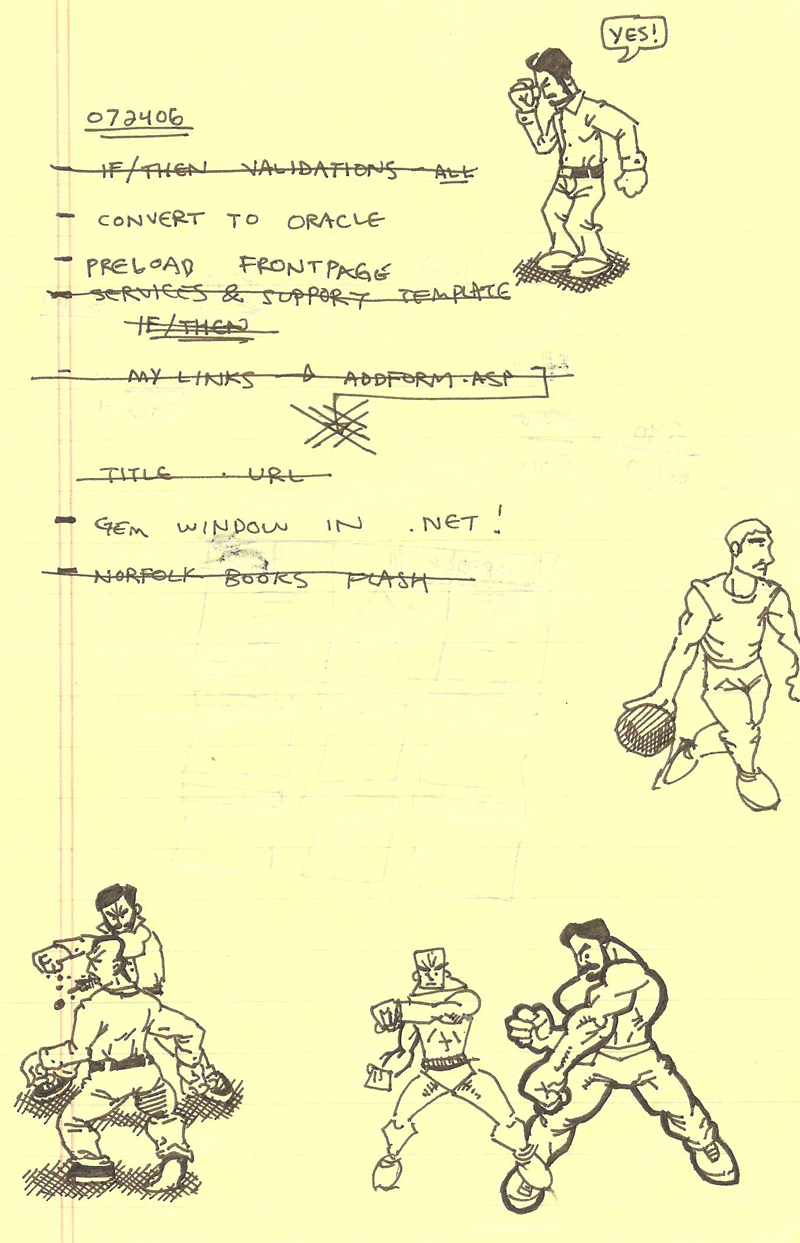 YES!
072406
- IF/THEN VALIDATIONS - ALL
- CONVERT TO ORACLE
- PRELOAD FRONTPAGE
- SERVICES & SUPPORT TEMPLATE
IF/THEN
- MY LINKS → ADDFORM.ASP
TITLE . URL
- GEM WINDOW IN .NET!
- NORFOLK BOOKS FLASH